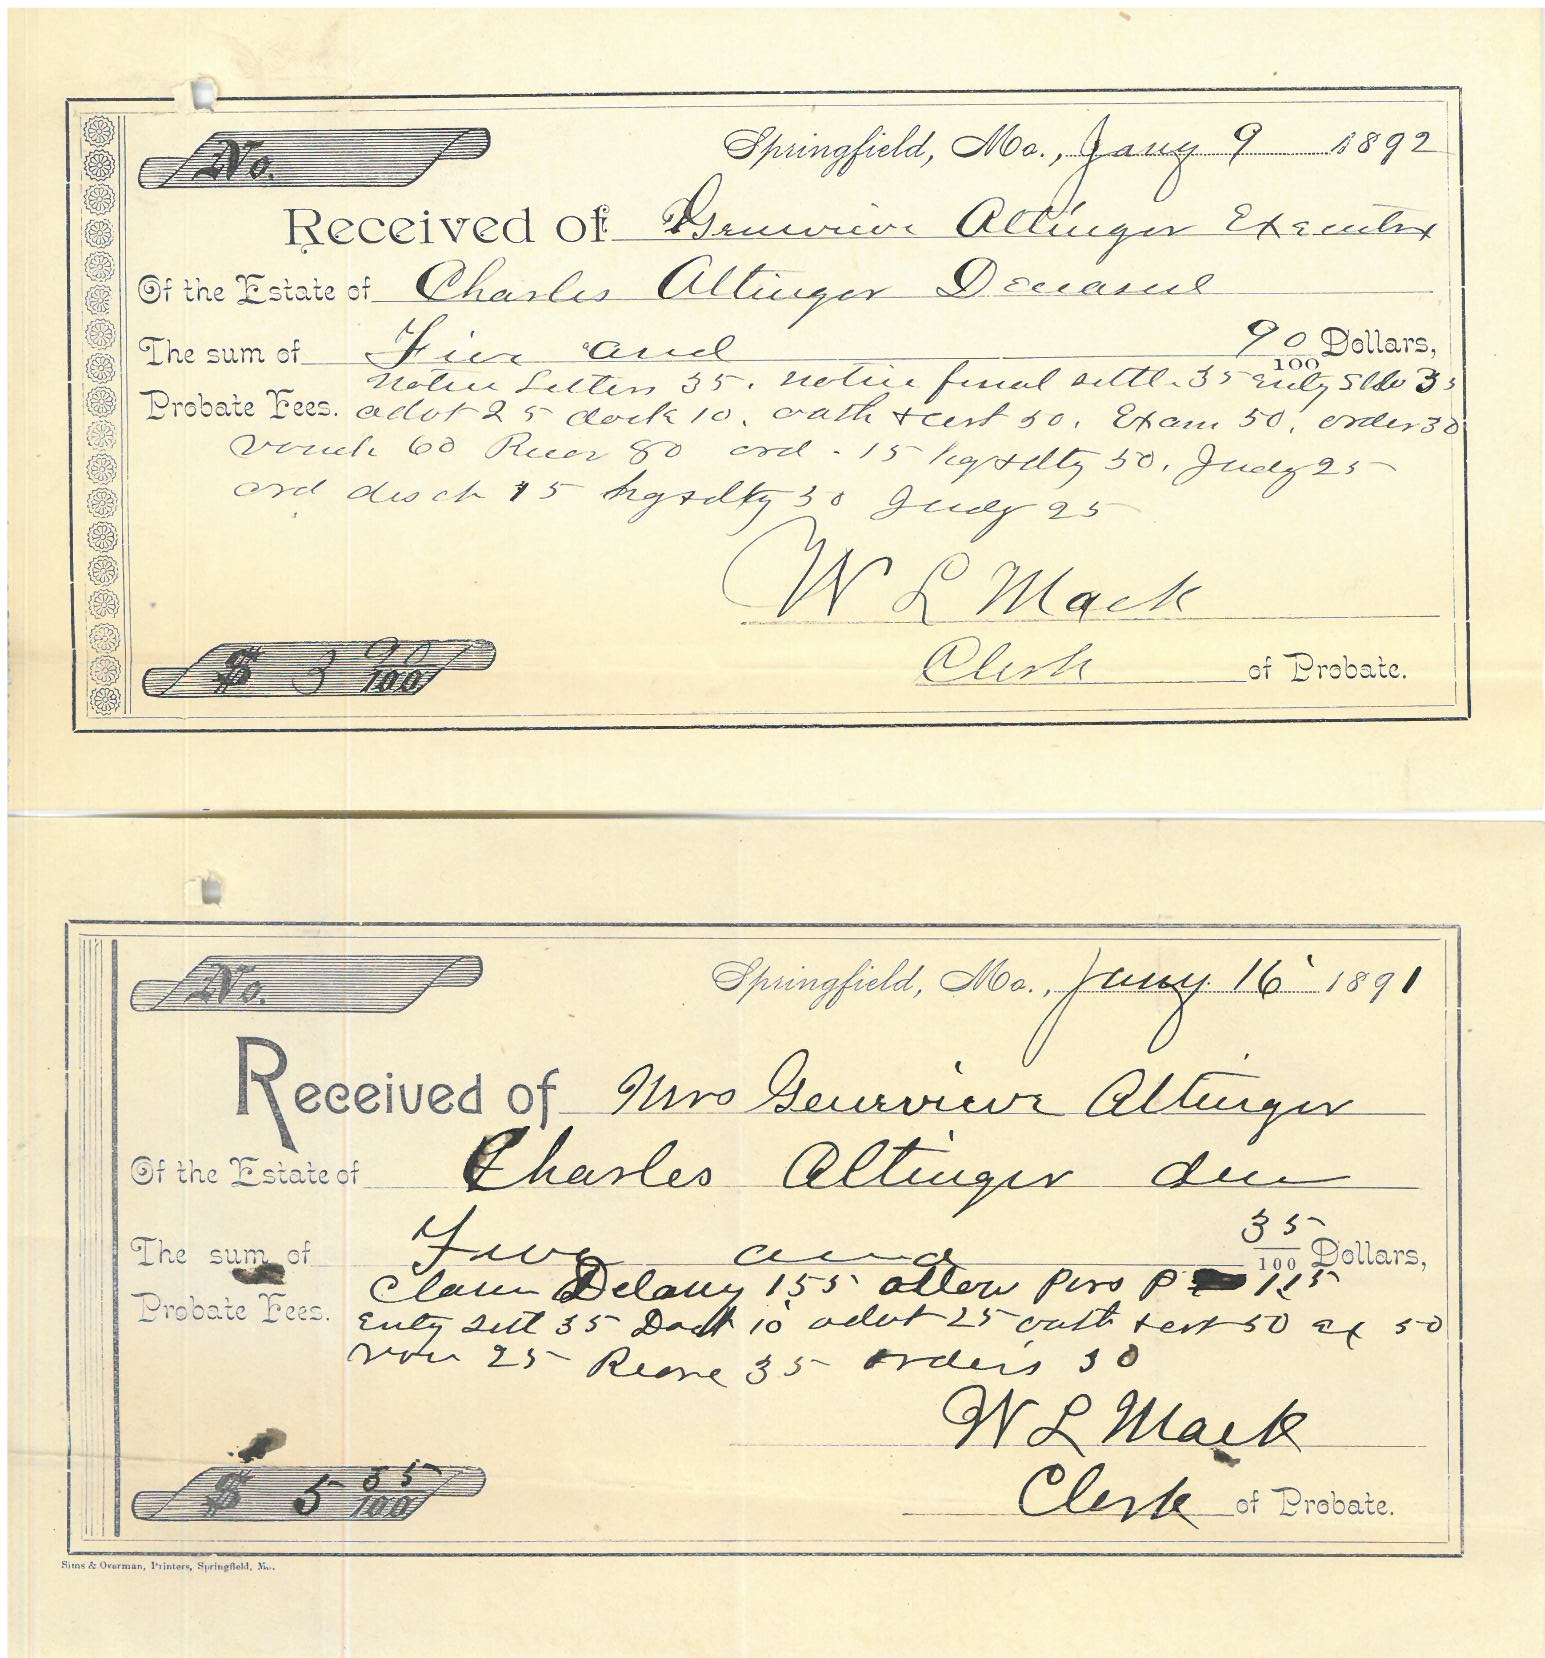 No.
Springfield, Mo., Jany 9 1892
Received of Genevieve Altinger Executrix
Of the Estate of Charles Altinger Deceased
The sum of Five and 90/100 Dollars,
Probate Fees. notice Letters 35. notice final settl. 35 Enty Settl 35
advt 25 dock 10. oath & cert 50. Exam 50. order 30
vouch 60 Recor 80 ord. 15 hg & dkty 50. Judg 25
ord disch 15 hg & dkty 50 Judg 25
W L Mack
Clerk of Probate.
$ 3 90/100
No.
Springfield, Mo., Jany. 16 1891
Received of Mrs Genevieve Altinger
Of the Estate of Charles Altinger dec
The sum of Five and 35/100 Dollars,
Probate Fees. Claim Delany 155 allow Pers P 115
Enty Sett 35 Dockt 10 advt 25 oath & cert 50 ex 50
vou 25 Recore 35 orders 30
W L Mack
Clerk of Probate.
$ 5 35/100
Sims & Overman, Printers, Springfield, Mo.